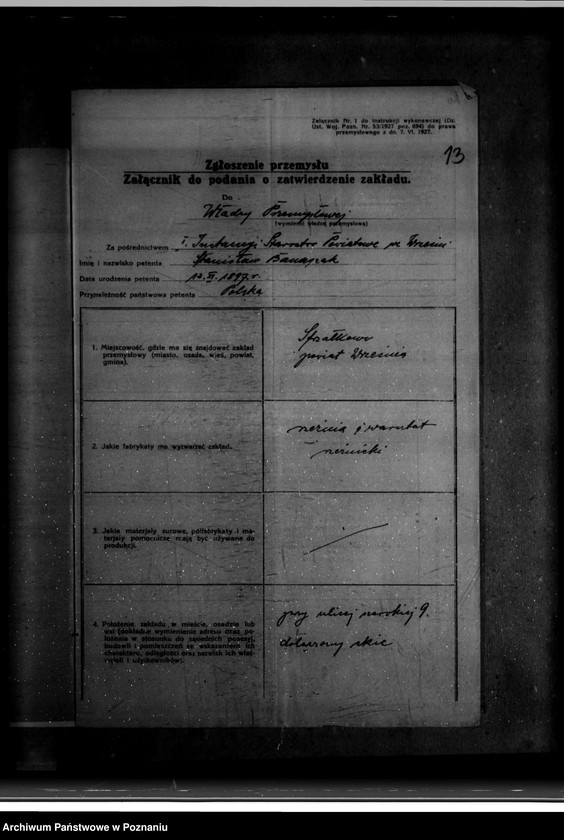 Załącznik Nr. 1 do instrukcji wykonawczej (Dz.
Ust. Woj. Pozn. Nr. 53/1927 poz. 694) do prawa
przemysłowego z dn. 7. VI. 1927.
13
Zgłoszenie przemysłu
Załącznik do podania o zatwierdzenie zakładu.
Do
Władzy Przemysłowej
(wymienić władzę przemysłową)
Za pośrednictwem I. Instancji Starostwo Powiatowe we Wrześni
Imię i nazwisko petenta Stanisław Banaszak
Data urodzenia petenta 1897 r.
Przynależność państwowa petenta Polska
1. Miejscowość, gdzie ma się znajdować zakład
przemysłowy (miasto, osada, wieś, powiat,
gmina).
Strzałkowo
powiat Września
2. Jakie fabrykaty ma wytwarzać zakład.
rzeźnia i warsztat
rzeźnicki
3. Jakie materjały surowe, półfabrykaty i ma-
terjały pomocnicze mają być używane do
produkcji.
4. Położenie zakładu w mieście, osadzie lub
wsi (dokładne wymienienie adresu oraz po-
łożenia w stosunku do sąsiednich posesyj,
budowli i pomieszczeń ze wskazaniem ich
charakteru, odległości oraz nazwisk ich wła-
ścicieli i użytkowników)
przy ulicy 9.
dołączony szkic
Archiwum Państwowe w Poznaniu